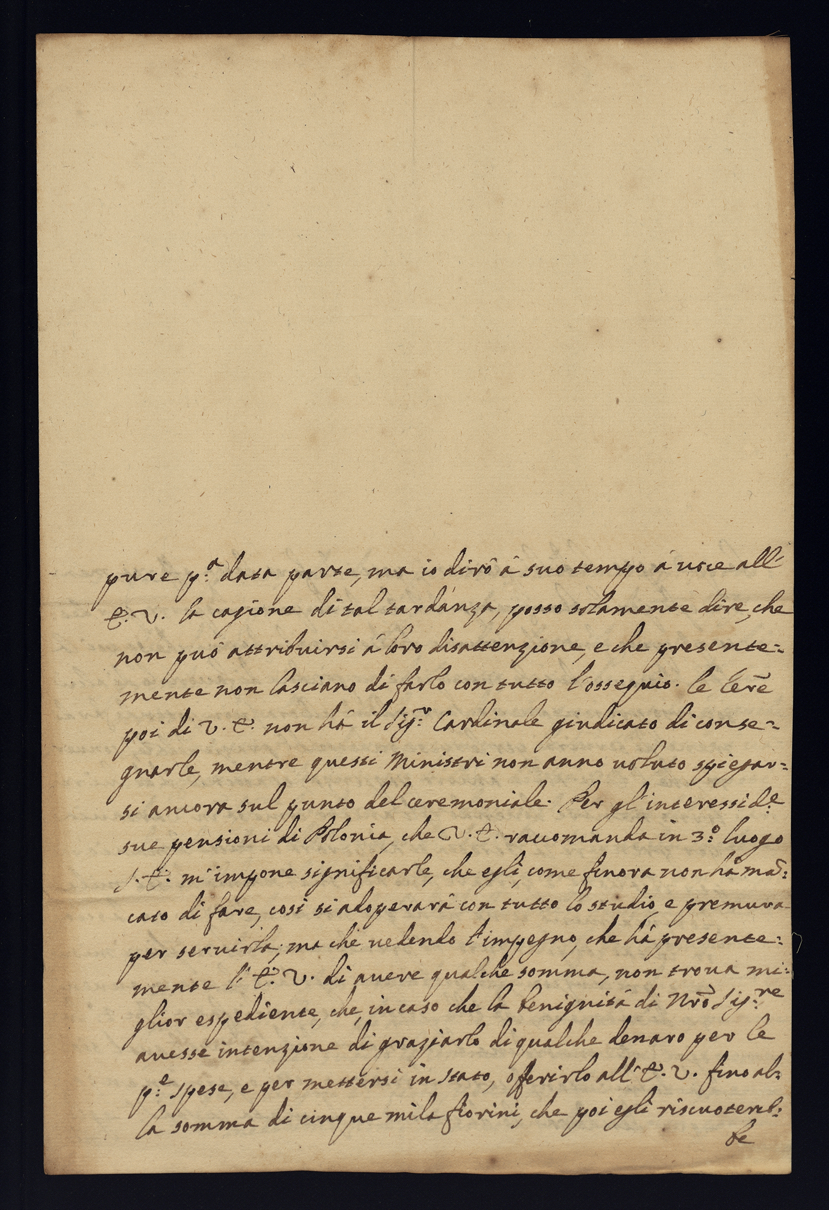 pure p.ª data parte, ma io dirò à suo tempo à voce all'
E. V. la cagione di tal tardanza, posso solamente dire, che
non può attribuirsi à loro disattenzione, e che presente=
mente non lasciano di farlo con tutto l'ossequio. Le
poi di V. E. non hà il Sig.r Cardinale giudicato di conse=
gnarle, mentre questi Ministri non anno voluto spiegar=
si ancora sul punto del ceremoniale. Per gl'interessi d.e
sue pensioni di Polonia, che V. E. raccomanda in 3.º luogo
S. E. m'impone significarle, che egli, come finora non hà mā=
cato di fare, così si adoperarà con tutto lo studio, e premura
per servirla; ma che vedendo l'impegno, che hà presente=
mente l'E. V. di avere qualche somma, non trova mi=
glior espediente, che, in caso che la benignità di Nrō Sig.re
avesse intenzione di graziarlo di qualche denaro per le
p.e spese, e per mettersi in stato, offerirlo all'E. V. fino al=
la somma di cinque mila fiorini, che poi egli riscuotereb=
be